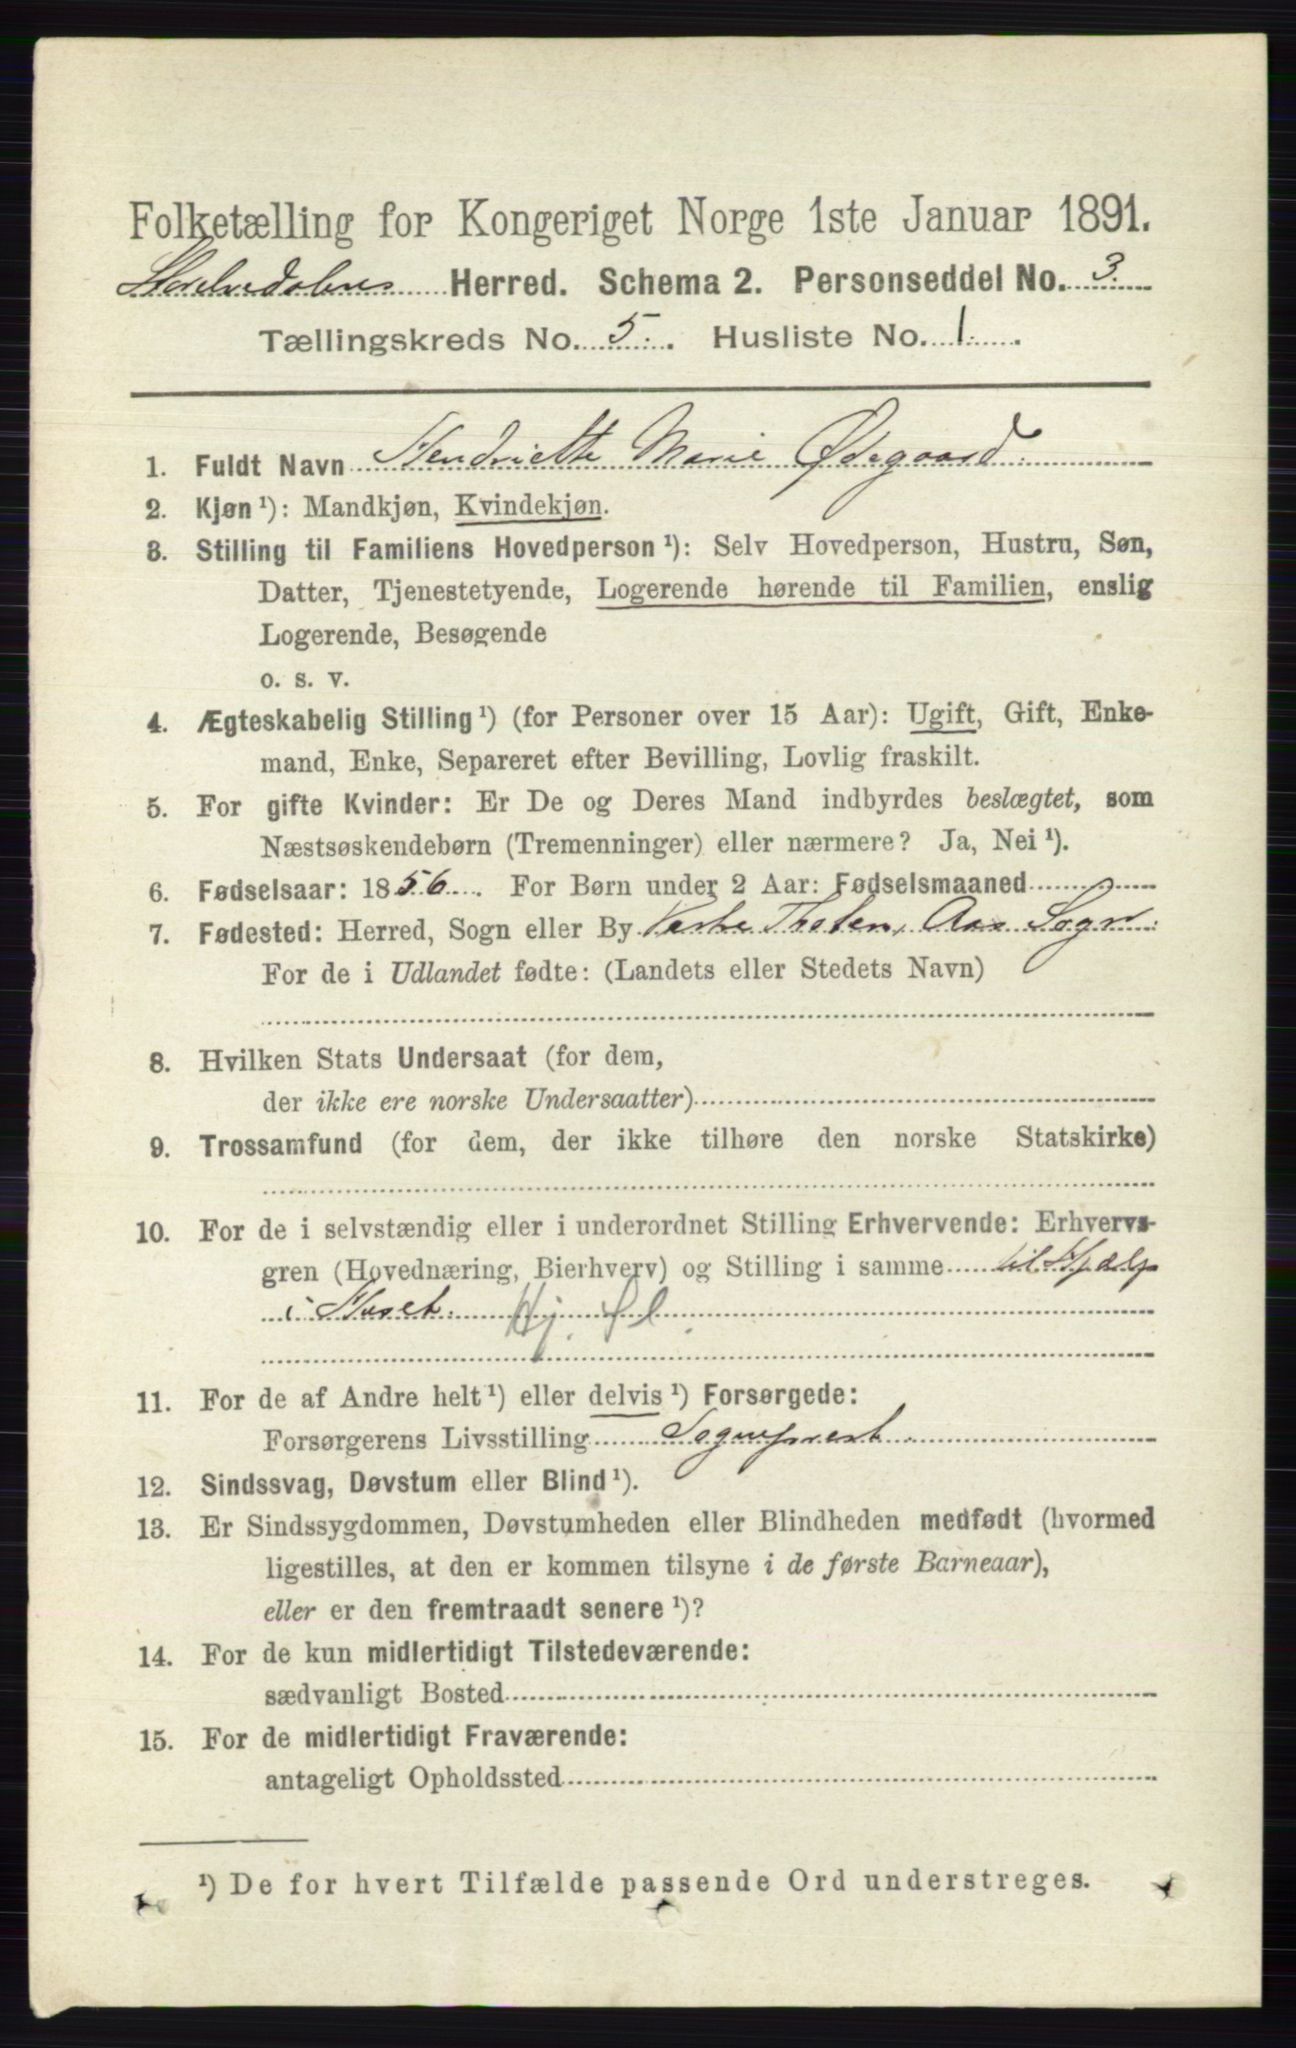 Folketælling for Kongeriget Norge 1ste Januar 1891.
Storelvedalens Herred. Schema 2. Personseddel No. 3.
Tællingskreds No. 5. Husliste No. 1.
1. Fuldt Navn Hendriette Marie Ødegaard.
2. Kjøn ¹): Mandkjøn, Kvindekjøn.
3. Stilling til Familiens Hovedperson ¹): Selv Hovedperson, Hustru, Søn,
Datter, Tjenestetyende, Logerende hørende til Familien, enslig
Logerende, Besøgende
o. s. v.
4. Ægteskabelig Stilling ¹) (for Personer over 15 Aar): Ugift, Gift, Enke-
mand, Enke, Separeret efter Bevilling, Lovlig fraskilt.
5. For gifte Kvinder: Er De og Deres Mand indbyrdes beslægtet, som
Næstsøskendebørn (Tremenninger) eller nærmere? Ja, Nei ¹).
6. Fødselsaar: 1856. For Børn under 2 Aar: Fødselsmaaned
7. Fødested: Herred, Sogn eller By Vestre Thoten, Aas Sogn.
For de i Udlandet fødte: (Landets eller Stedets Navn)
8. Hvilken Stats Undersaat (for dem,
der ikke ere norske Undersaatter)
9. Trossamfund (for dem, der ikke tilhøre den norske Statskirke)
10. For de i selvstændig eller i underordnet Stilling Erhvervende: Erhvervs-
gren (Hovednæring, Bierhverv) og Stilling i samme til Hjælp
i Huset. Hj.
11. For de af Andre helt ¹) eller delvis ¹) Forsørgede:
Forsørgerens Livsstilling Sogneprest.
12. Sindssvag, Døvstum eller Blind ¹).
13. Er Sindssygdommen, Døvstumheden eller Blindheden medfødt (hvormed
ligestilles, at den er kommen tilsyne i de første Barneaar),
eller er den fremtraadt senere ¹)?
14. For de kun midlertidigt Tilstedeværende:
sædvanligt Bosted
15. For de midlertidigt Fraværende:
antageligt Opholdssted
¹) De for hvert Tilfælde passende Ord understreges.